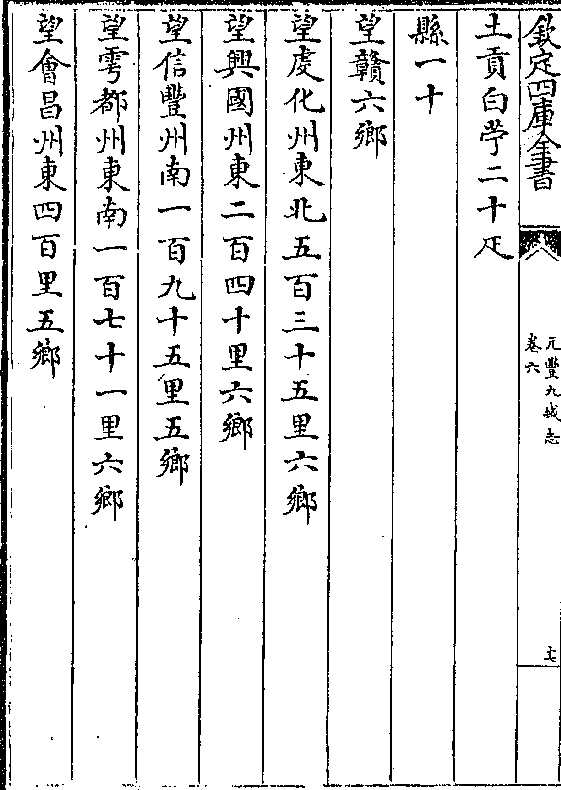 欽定四庫全書
元豐九域志
卷六
十七
土貢白苧二十疋
縣一十
望贛六鄉
望虔化州東北五百三十五里六鄉
望興國州東二百四十里六鄉
望信豐州南一百九十五里五鄉
望雩都州東南一百七十一里六鄉
望會昌州東四百里五鄉